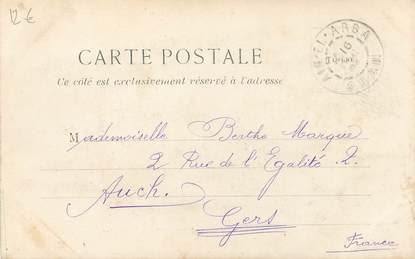 12 €
EL-ARBA
16
CARTE POSTALE
Ce côté est exclusivement réservé à l'adresse
Mademoiselle Berthe Marque
2 Rue de l'Egalité. 2.
Auch.
Gers
France